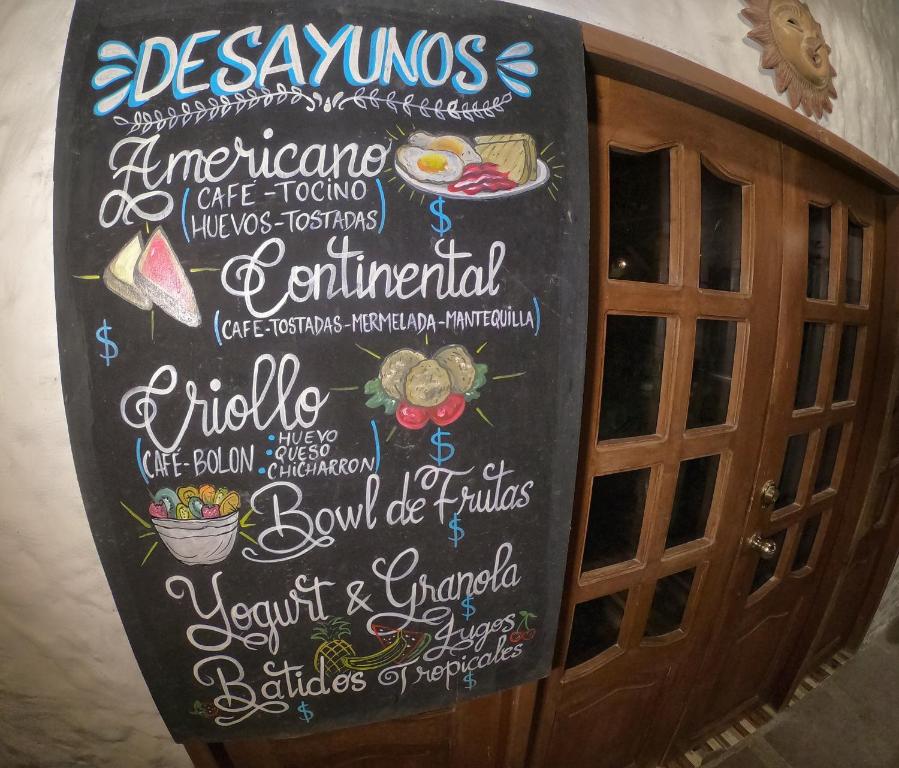 DESAYUNOS
Americano
(CAFÉ - TOCINO
HUEVOS - TOSTADAS)
$
Continental
(CAFE-TOSTADAS-MERMELADA-MANTEQUILLA)
$
Criollo
(CAFÉ-BOLON : HUEVO
QUESO
CHICHARRON)
$
Bowl de Frutas
$
Yogurt & Granola
$
Jugos
Tropicales
$
Batidos
$